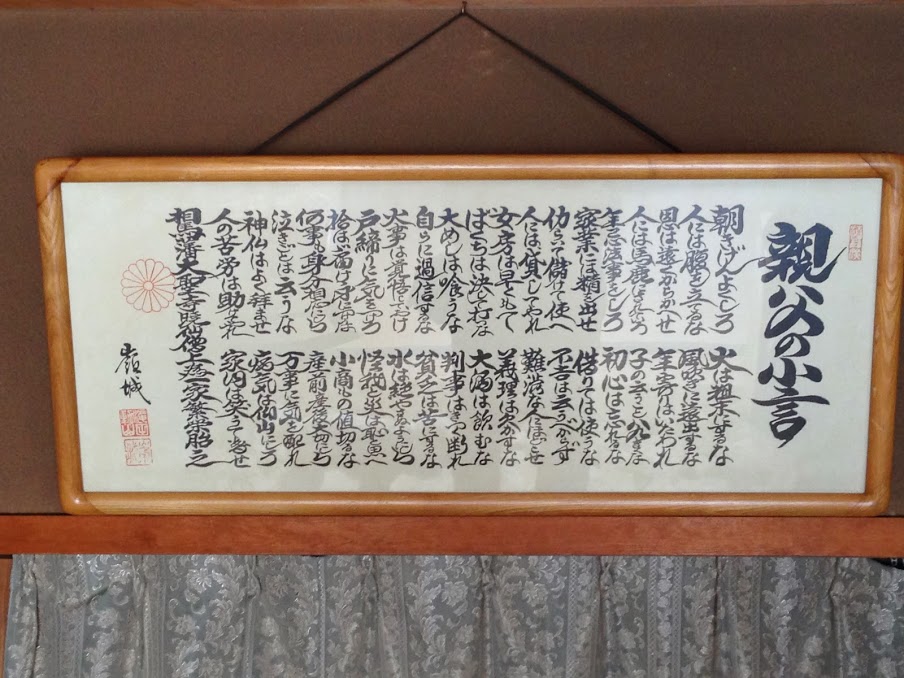 親父の小言
朝きげんよくしろ
火は粗末にするな
人には腹を立てるな
風吹きに遠出するな
恩は遠くからかくせ
年寄りはいたわれ
人には馬鹿にされていろ
子の云うこと八九きくな
年忌法事をしろ
初心は忘れるな
家業には精を出せ
借りては使うな
働いて儲けて使へ
不吉は云うべからず
人には貸してやれ
難渋な人にほどこせ
女房は早くもて
義理は欠かすな
ばくちは決して打な
大酒は飲むな
大めしは喰うな
判事はきつく断れ
自らに過信するな
貧乏は苦にするな
火事は覚悟しておけ
水は絶やさぬようにしろ
戸締りに気をつけろ
怪我と災は恥と思へ
拾わば届け身につけるな
小商ものを値切るな
何事も身分相応にしろ
産前産後大切にしろ
泣きごとは云うな
万事に気を配れ
神仏はよく拝ませ
病気は仙山にしろ
人の苦労は助けてやれ
家内は笑ふて暮せ
相馬藩大聖寺暁仙僧上 家繁栄
嶺城